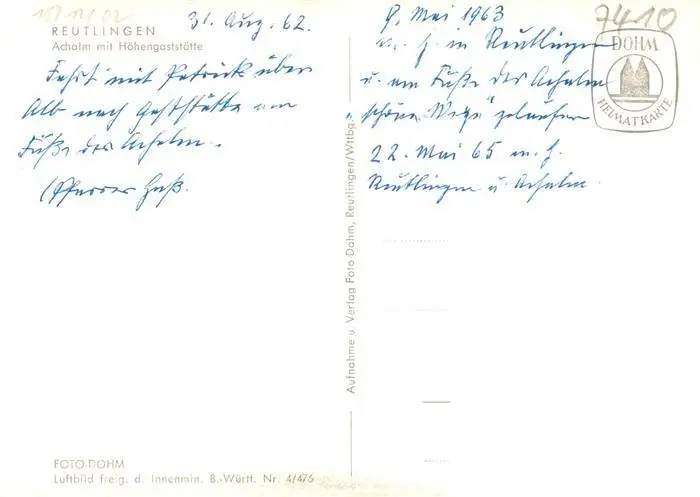 REUTLINGEN
Achalm mit Höhengaststätte
31. Aug. 62.
Fahrt mit Patrick über
Alb nach Gaststätte am
Fuße der Achalm.
(Pfarrer Haß.
FOTO-DOHM
Luftbild freig. d. Innenmin. B.-Württ. Nr. 4/476
Aufnahme u. Verlag Foto-Dohm, Reutlingen/Wttbg.
8. Mai 1963
m. H. in Reutlingen
u. am Fuße der Achalm
"schöne Wege" gelaufen
22. Mai 65 m. H.
Reutlingen u. Achalm.
7410
DOHM
HEIMATKARTE